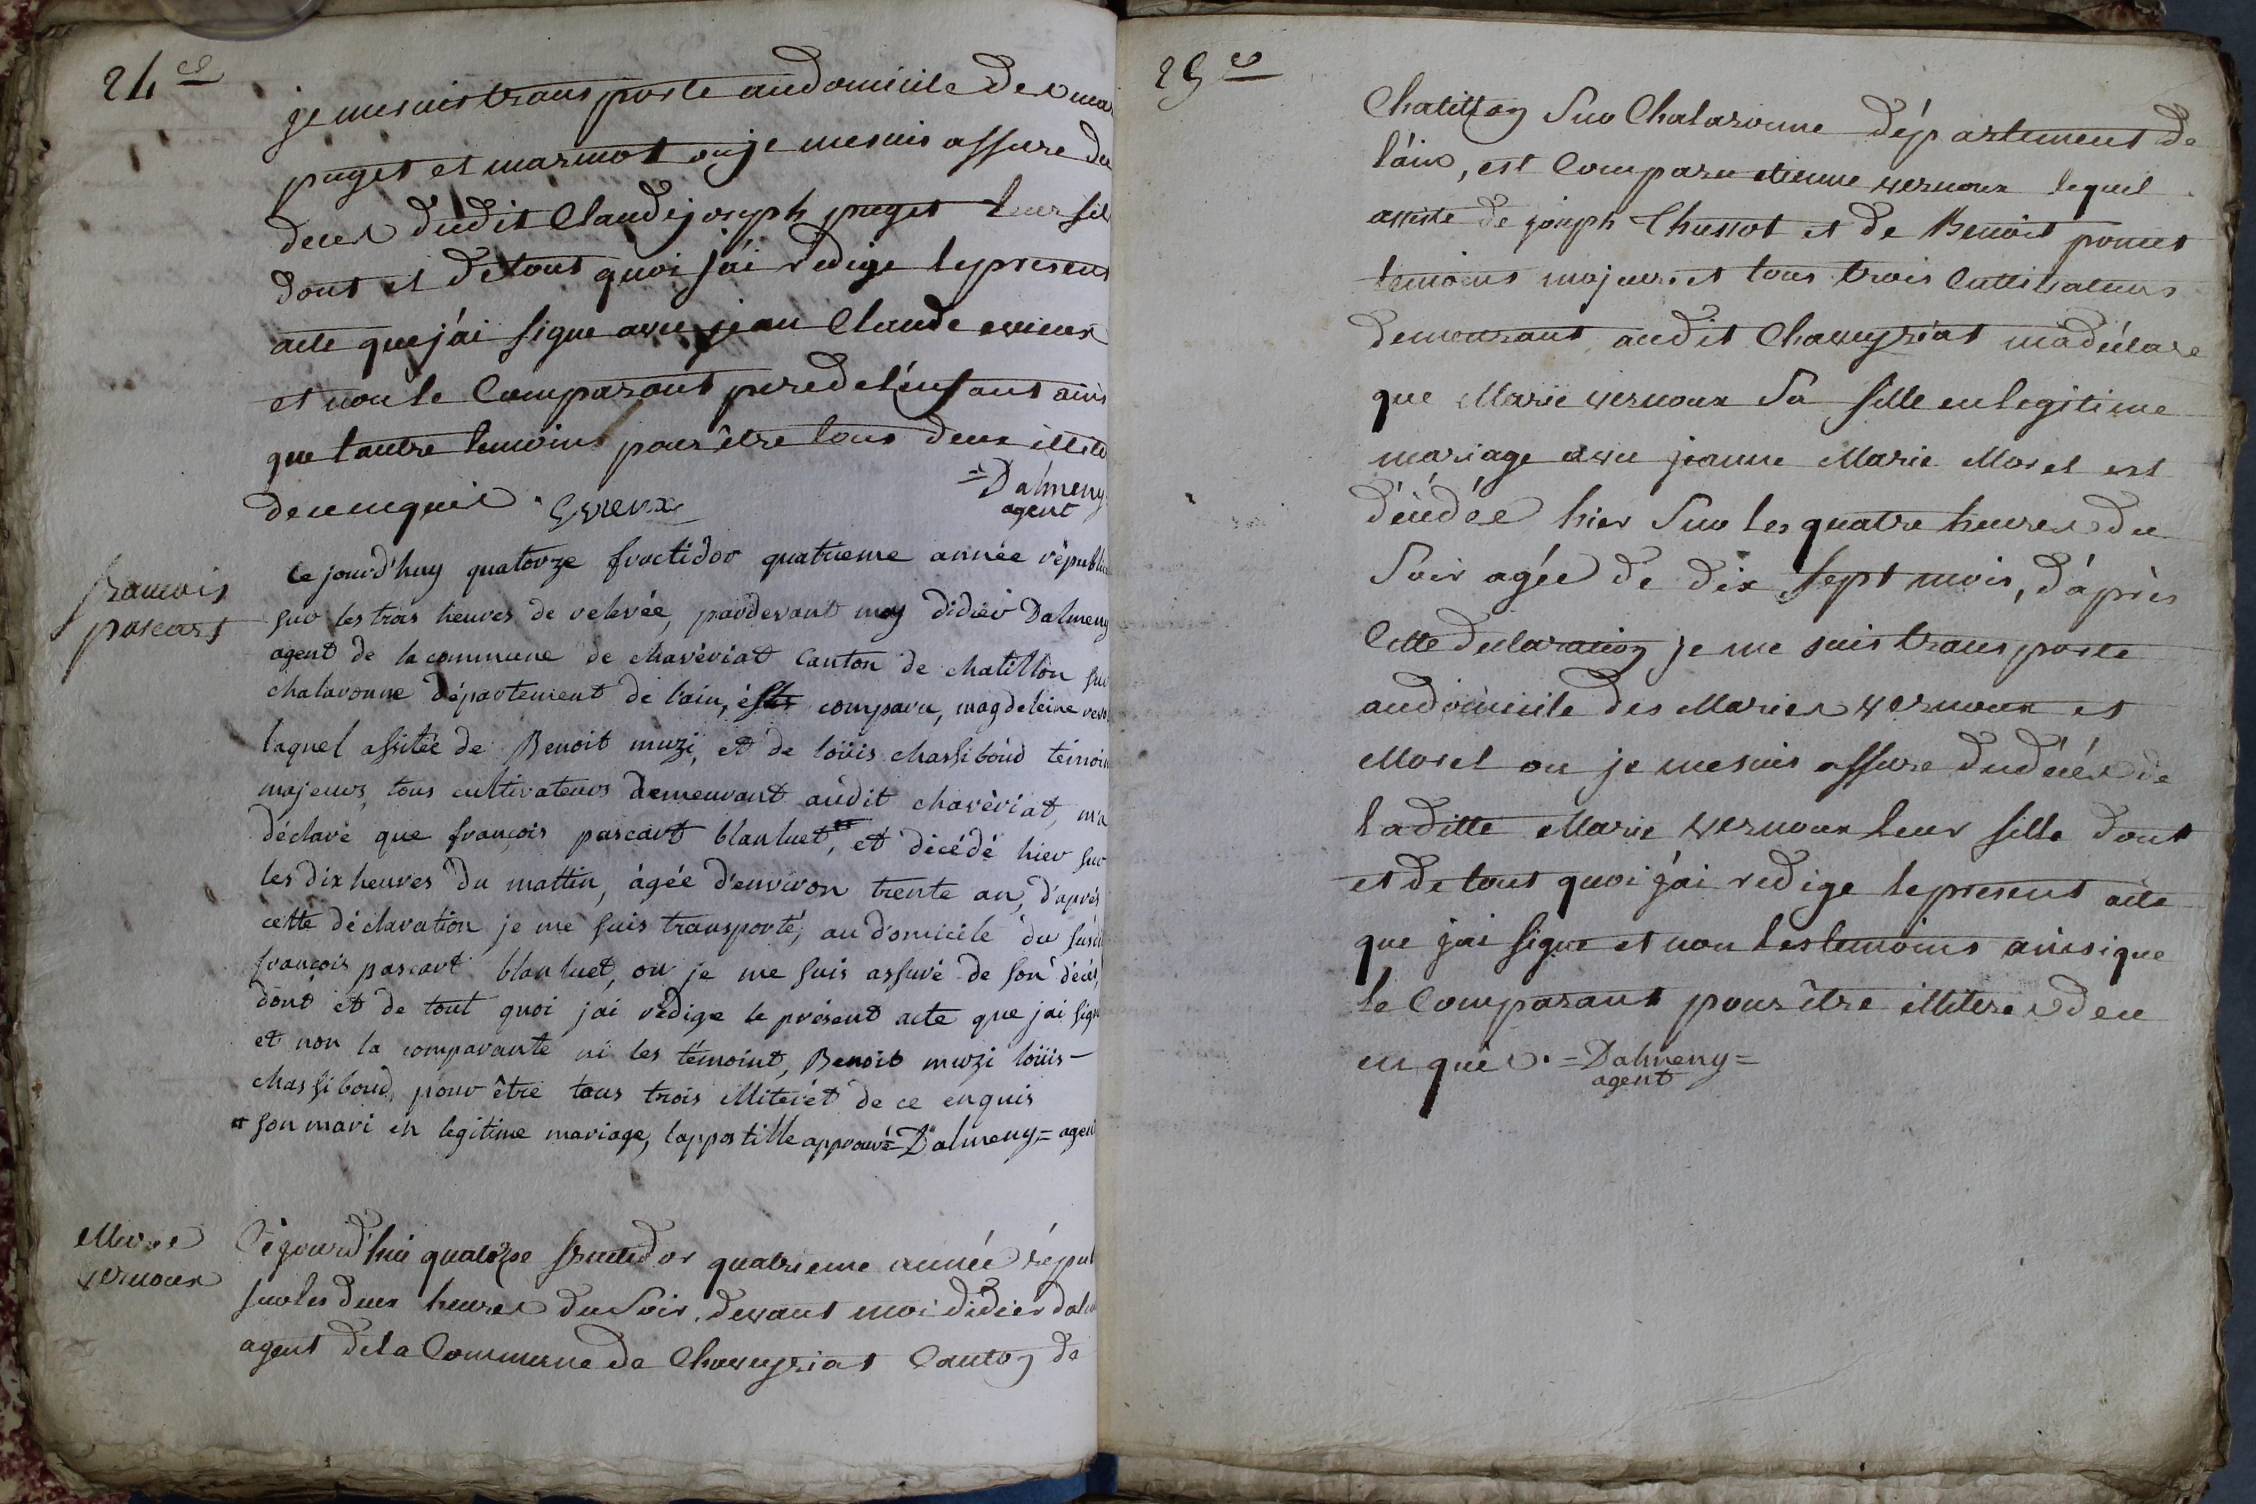 24.e
je me suis transporté au domicile des ma
puget et marmot ou je me suis assure du
deces dudit Claude joseph puget leur fil
dont et de tout quoi j'ai redige le present
acte que j'ai signe avec jean Claude evieux
et non le Comparant pere de l'enfant ains
que l'autre temoins pour être tous deux illite
de ce enquis Evieux =Dalmeny
agent
francois
pascart
Ce jourd'huy quatorze fructidor quatrieme année républi
sur les trois heures de relevée, pardevant moy didier Dalmeny
agent de la commune de chavèriat Canton de chatillon sur
chalaronne département de l'ain, est comparu, magdeleine
laquel assitée de Benoit muzi, et de loüis chassiboud témoin
majeurs, tous cultivateurs demeurant audit chavèriat, m'a
déclaré que françois pascart blanluet, et décédé hier sur
les dix heures du mattin, âgée d'environ trente an, d'après
cette déclaration je me suis transporté, au domicile du susdi
françois pascart blanluet, ou je me suis assuré de son décés,
dont et de tout quoi jai rédige le présent acte que jai sign
et non la comparante ni les témoint, Benoit muzi loüis-
chassiboud, pour être tous trois illiterét de ce enquis
son mari en legitime mariage, lappostille approuvé =Dalmeny= agent
Marie
vernoux
Cejourd'hui quatorze fructidor quatrieme année répul
sur les deux heures du soir, devant moi didier dalm
agent de la Commune de Chaveyriat Canton de
25.e
Chatillon sur Chalaronne département de
l'ain, est Comparu etienne vernoux lequel
assisté de joseph Chussot et de Benoit poncet
temoins majeurs et tous trois Cultivateurs
demeurant audit Chaveyriat m'a déclare
que Marie vernoux sa fille en legitime
mariage avec jeanne Marie Morel est
décédée hier sur les quatre heures du
soir agée de dix sept mois, d'après
Cette declaration je me suis transporte
au domicile des Maries vernoux et
Morel ou je me suis assure du décés de
laditte Marie vernoux leur fille dont
et de tout quoi j'ai redige le present acte
que j'ai signe et non les temoins ainsi que
le Comparant pour être illiteres de ce
enquis. =Dalmeny=
agent